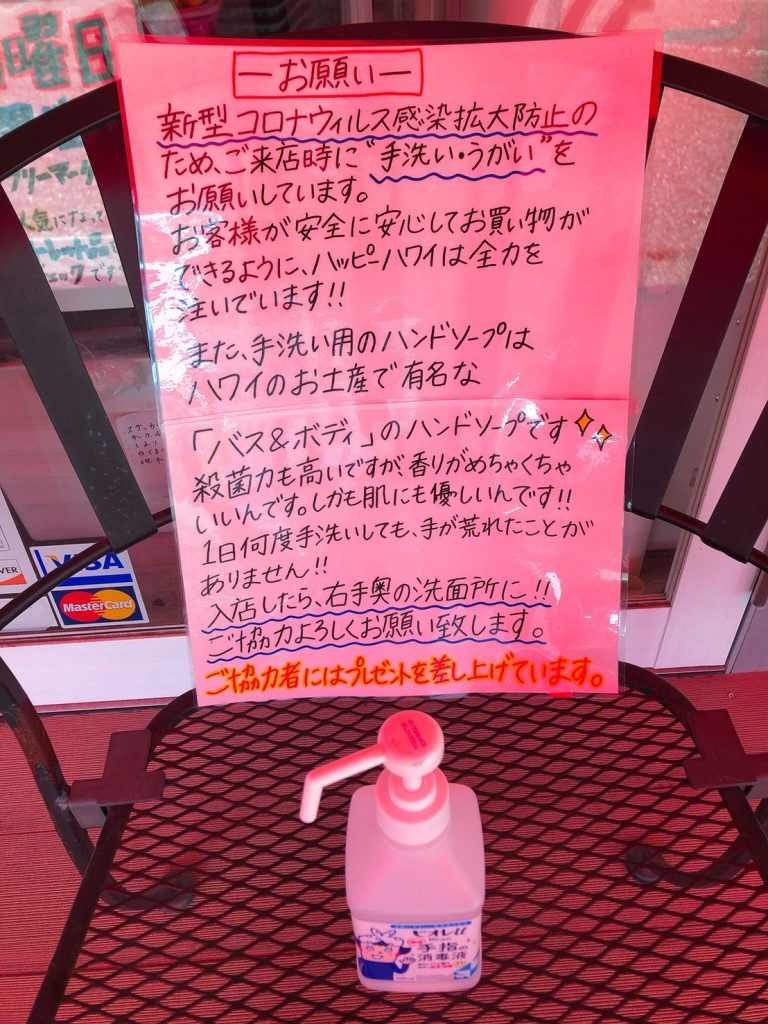 曜日
フリーマーケ
人気になって
ーレット品も
ェックです
ーお願いー
新型コロナウィルス感染拡大防止の
ため、ご来店時に"手洗い・うがい"を
お願いしています。
お客様が安全に安心してお買い物が
できるように、ハッピーハワイは全力を
注いでいます!!
また、手洗い用のハンドソープは
ハワイのお土産で有名な
「バス&ボディ」のハンドソープです
殺菌力も高いですが、香りがめちゃくちゃ
いいんです。しかも肌にも優しいんです!!
1日何度手洗いしても、手が荒れたことが
ありません!!
入店したら、右手奥の洗面所に!!
ご協力よろしくお願い致します。
ご協力者にはプレゼントを差し上げています。
VISA
MasterCard
VER
ビオレu
手指の
消毒液